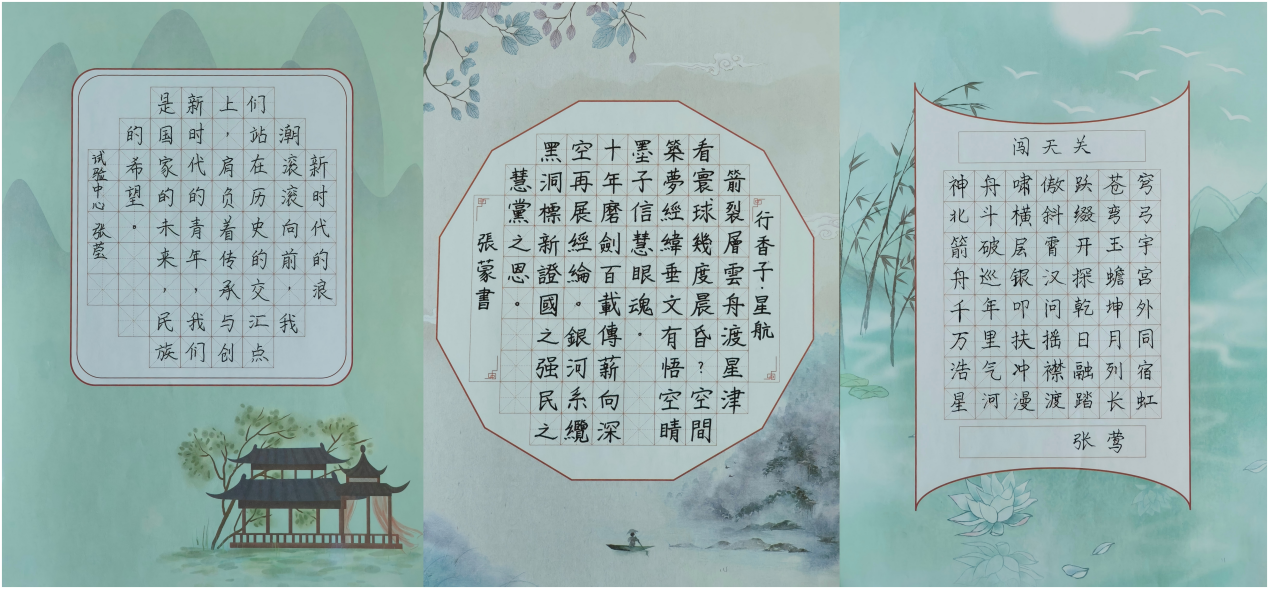 新时代的浪
潮滚滚向前，我
们站在历史的交汇点
上，肩负着传承与创
新时代的青年，我们
是国家的未来，民族
的希望。
试验中心 张莹
行香子·星航
箭裂層雲舟渡星津
看寰球幾度晨昏？空間
築夢經緯垂文有悟空睛
墨子信慧眼魂.
十年磨劍百載傳薪向深
空再展經綸。銀河系纜
黑洞標新證國之强民之
慧黨之恩。
張蒙書
闯天关
神舟啸傲跃苍穹
北斗横斜缀弯弓
箭破层霄开玉宇
舟巡银汉探蟾宫
千年叩问乾坤外
万里扶摇日月同
浩气冲襟融列宿
星河漫渡踏长虹
张莺